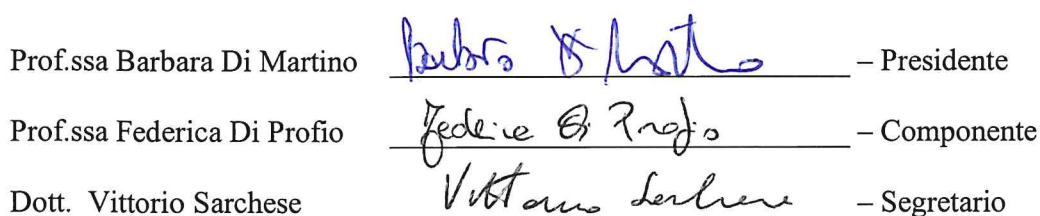 Prof.ssa Barbara Di Martino Barbara Di Martino – Presidente
Prof.ssa Federica Di Profio Federica Di Profio – Componente
Dott. Vittorio Sarchese Vittorio Sarchese – Segretario